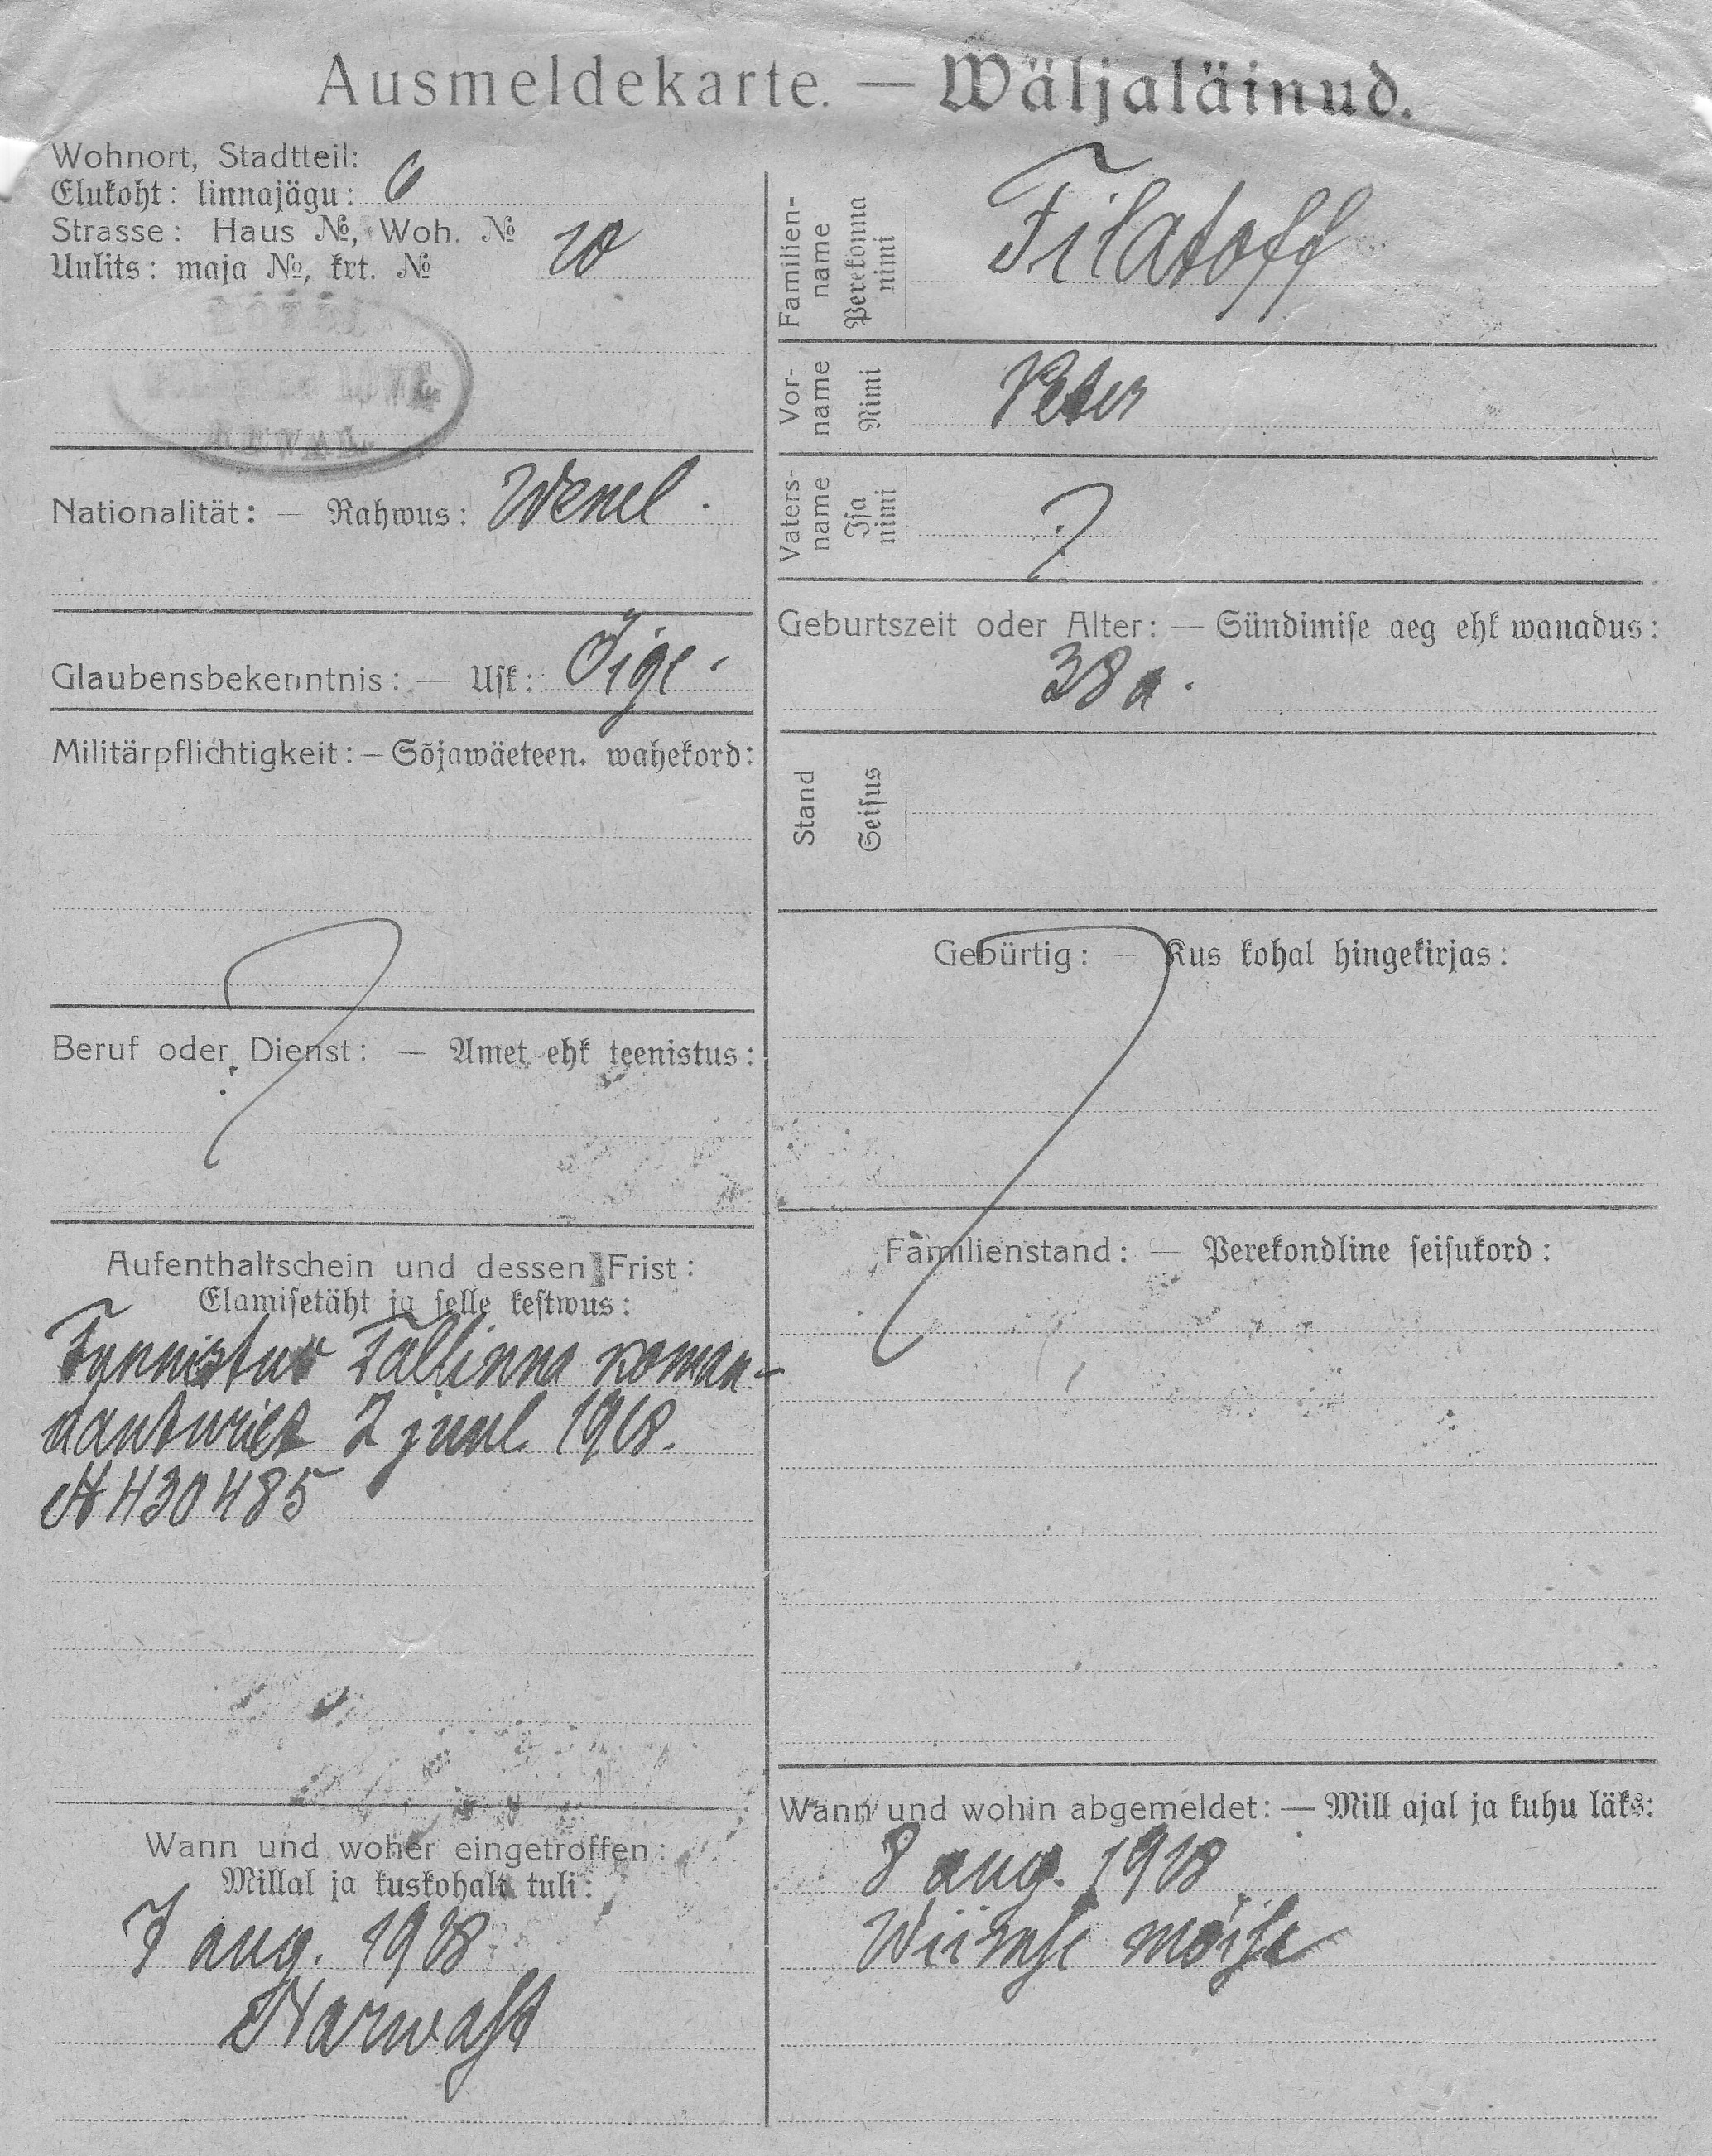 Ausmeldekarte. — Wäljaläinud.
Wohnort, Stadtteil:
Elukoht: linnajägu: 6
Strasse: Haus №, Woh. №
Uulits: maja №, krt. № 10
REWAL
Nationalität: — Rahwus: Wenel.
Glaubensbekenntnis: — Usk: Õige.
Militärpflichtigkeit: — Sõjawäeteen. wahekord:
?
Beruf oder Dienst: — Amet ehk teenistus:
Aufenthaltschein und dessen Frist:
Elamisetäht ja selle kestwus:
Tunnistus Tallinna koman-
danturist 2 junil 1918.
№ 430485
Wann und woher eingetroffen:
Millal ja kuskohalt tuli:
7 aug. 1918
Narwast
Familien-
name
Perekonna
nimi
Filatoff
Vor-
name
Nimi
Peter
Vaters-
name
Isa
nimi
?
Geburtszeit oder Alter: — Sündimise aeg ehk wanadus:
38 a.
Stand
Seisus
Gebürtig: — Kus kohal hingekirjas:
?
Familienstand: — Perekondline seisukord:
Wann und wohin abgemeldet: — Mill ajal ja kuhu läks:
8 aug. 1918
mõisa